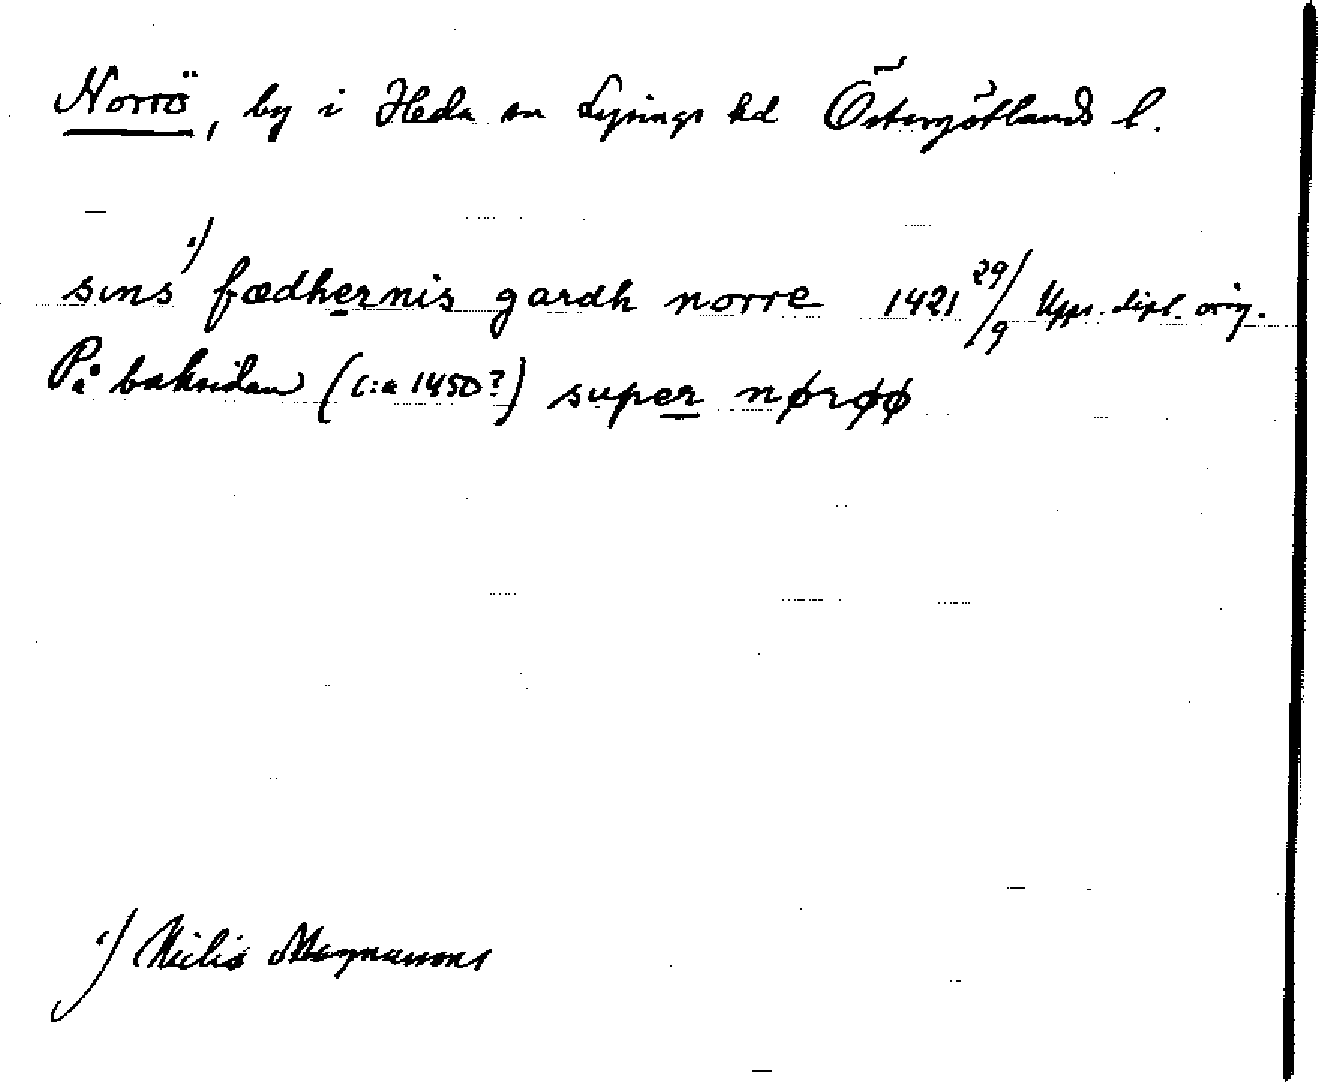 Norrö, by i Heda sn Lysings hd Östergötlands l.
sins ¹) fædhernis gardh norre 1421 29/9 Upps. dipl. orig.
På baksidan (c:a 1450?) super nørøø
¹) Niclis Magnussons